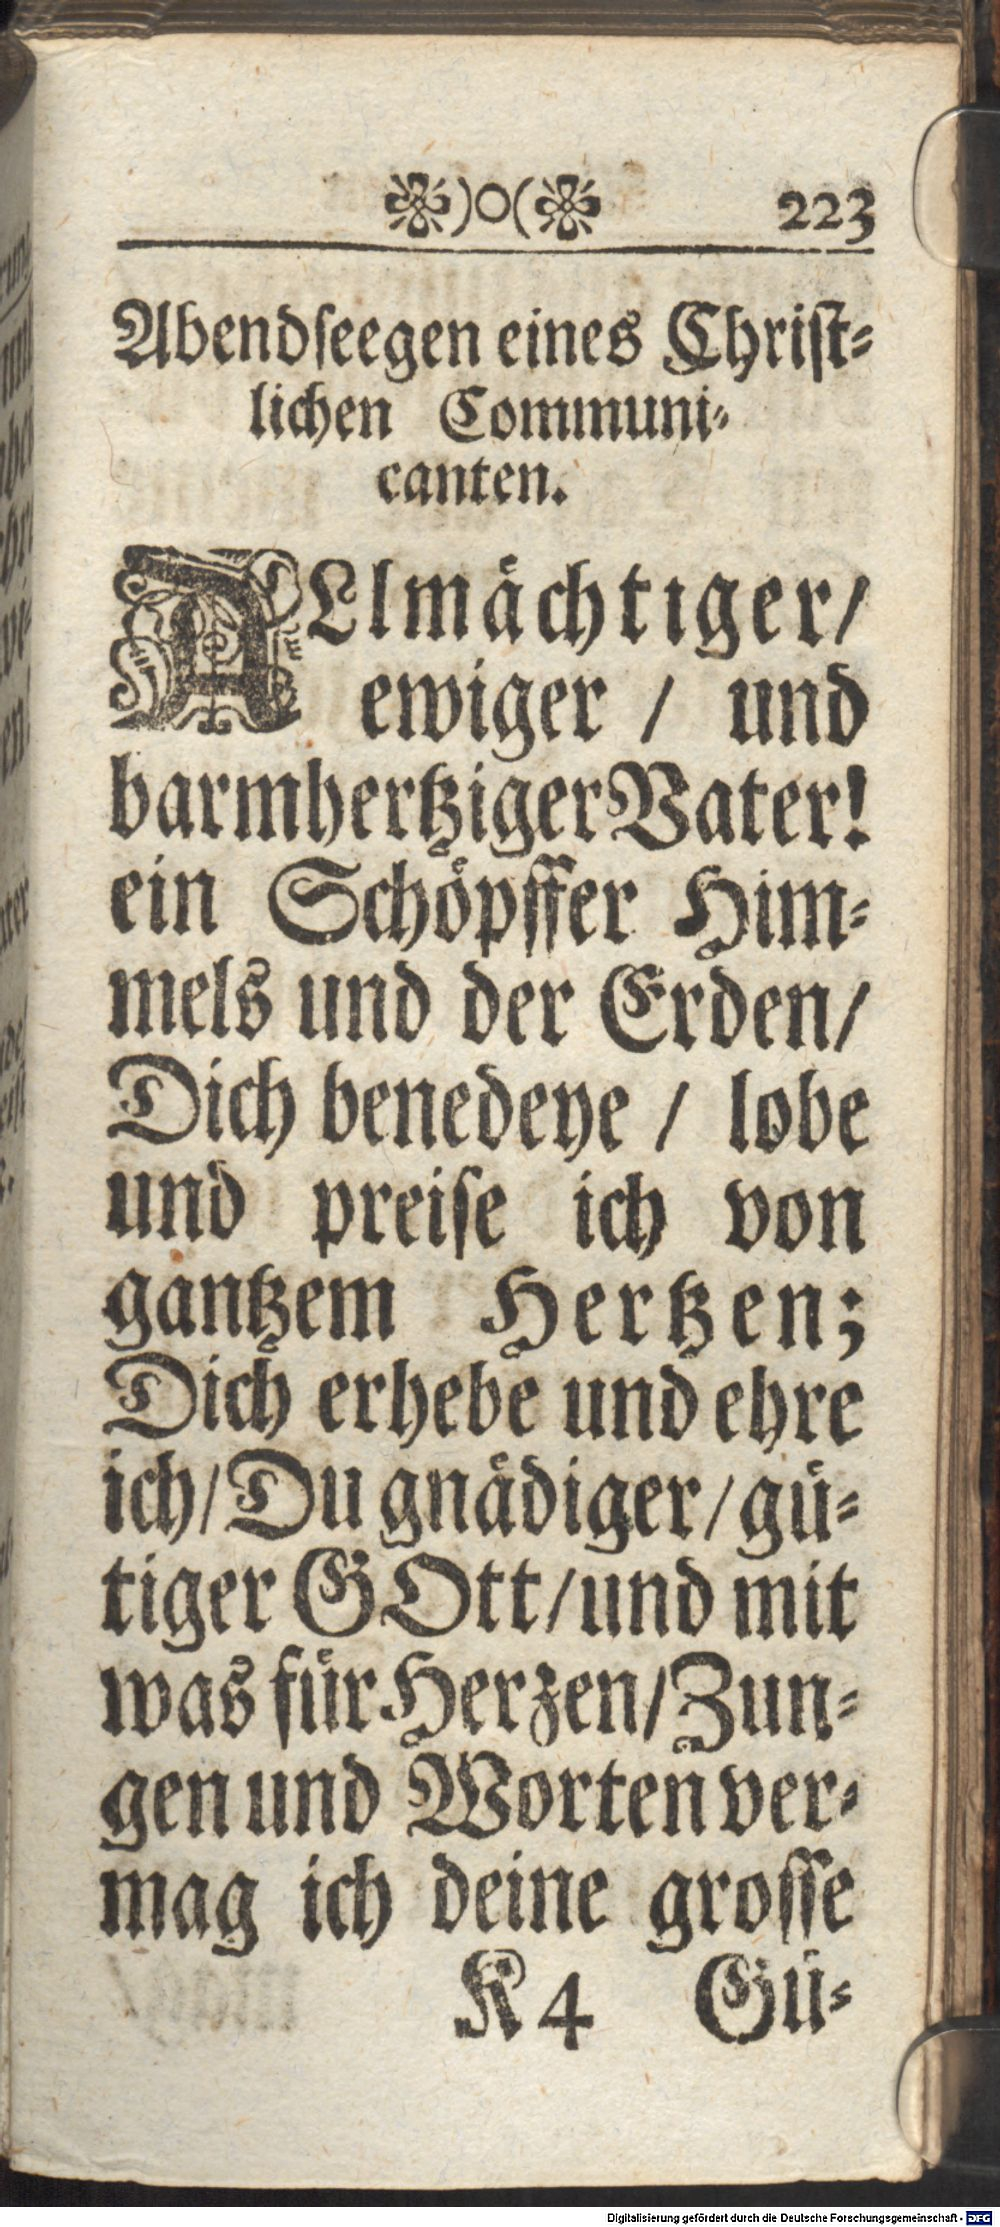 )O( 223
Abendſeegen eines Chriſt-
lichen Communi-
canten.
ALlmaͤchtiger/
ewiger / und
barmhertziger Vater!
ein Schoͤpffer Him-
mels und der Erden/
Dich benedeye / lobe
und preiſe ich von
gantzem Hertzen;
Dich erhebe und ehre
ich/ Du gnaͤdiger/ guͤ-
tiger GOtt/ und mit
was fuͤr Herzen/ Zun-
gen und Worten ver-
mag ich deine groſſe
K 4 Guͤ-
Digitalisierung gefördert durch die Deutsche Forschungsgemeinschaft - DFG